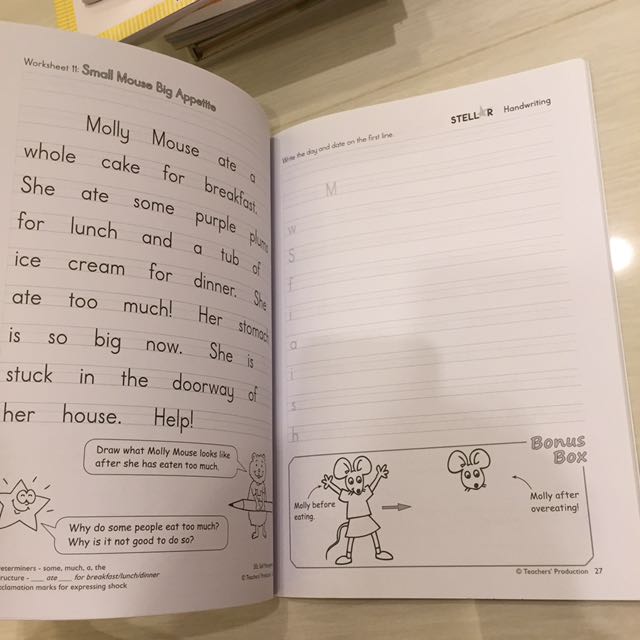 Worksheet 11: Small Mouse Big Appetite
Molly Mouse ate a
whole cake for breakfast.
She ate some purple plums
for lunch and a tub of
ice cream for dinner. She
ate too much! Her stomach
is so big now. She is
stuck in the doorway of
her house. Help!
Draw what Molly Mouse looks like
after she has eaten too much.
Why do some people eat too much?
Why is it not good to do so?
eterminers - some, much, a, the
ructure - ___ ate ___ for breakfast/lunch/dinner
xclamation marks for expressing shock
© Teachers' Production
STELLAR Handwriting
Write the day and date on the first line.
M
w
S
f
i
a
i
s
h
Bonus
Box
Molly before
eating.
Molly after
overeating!
© Teachers' Production 27